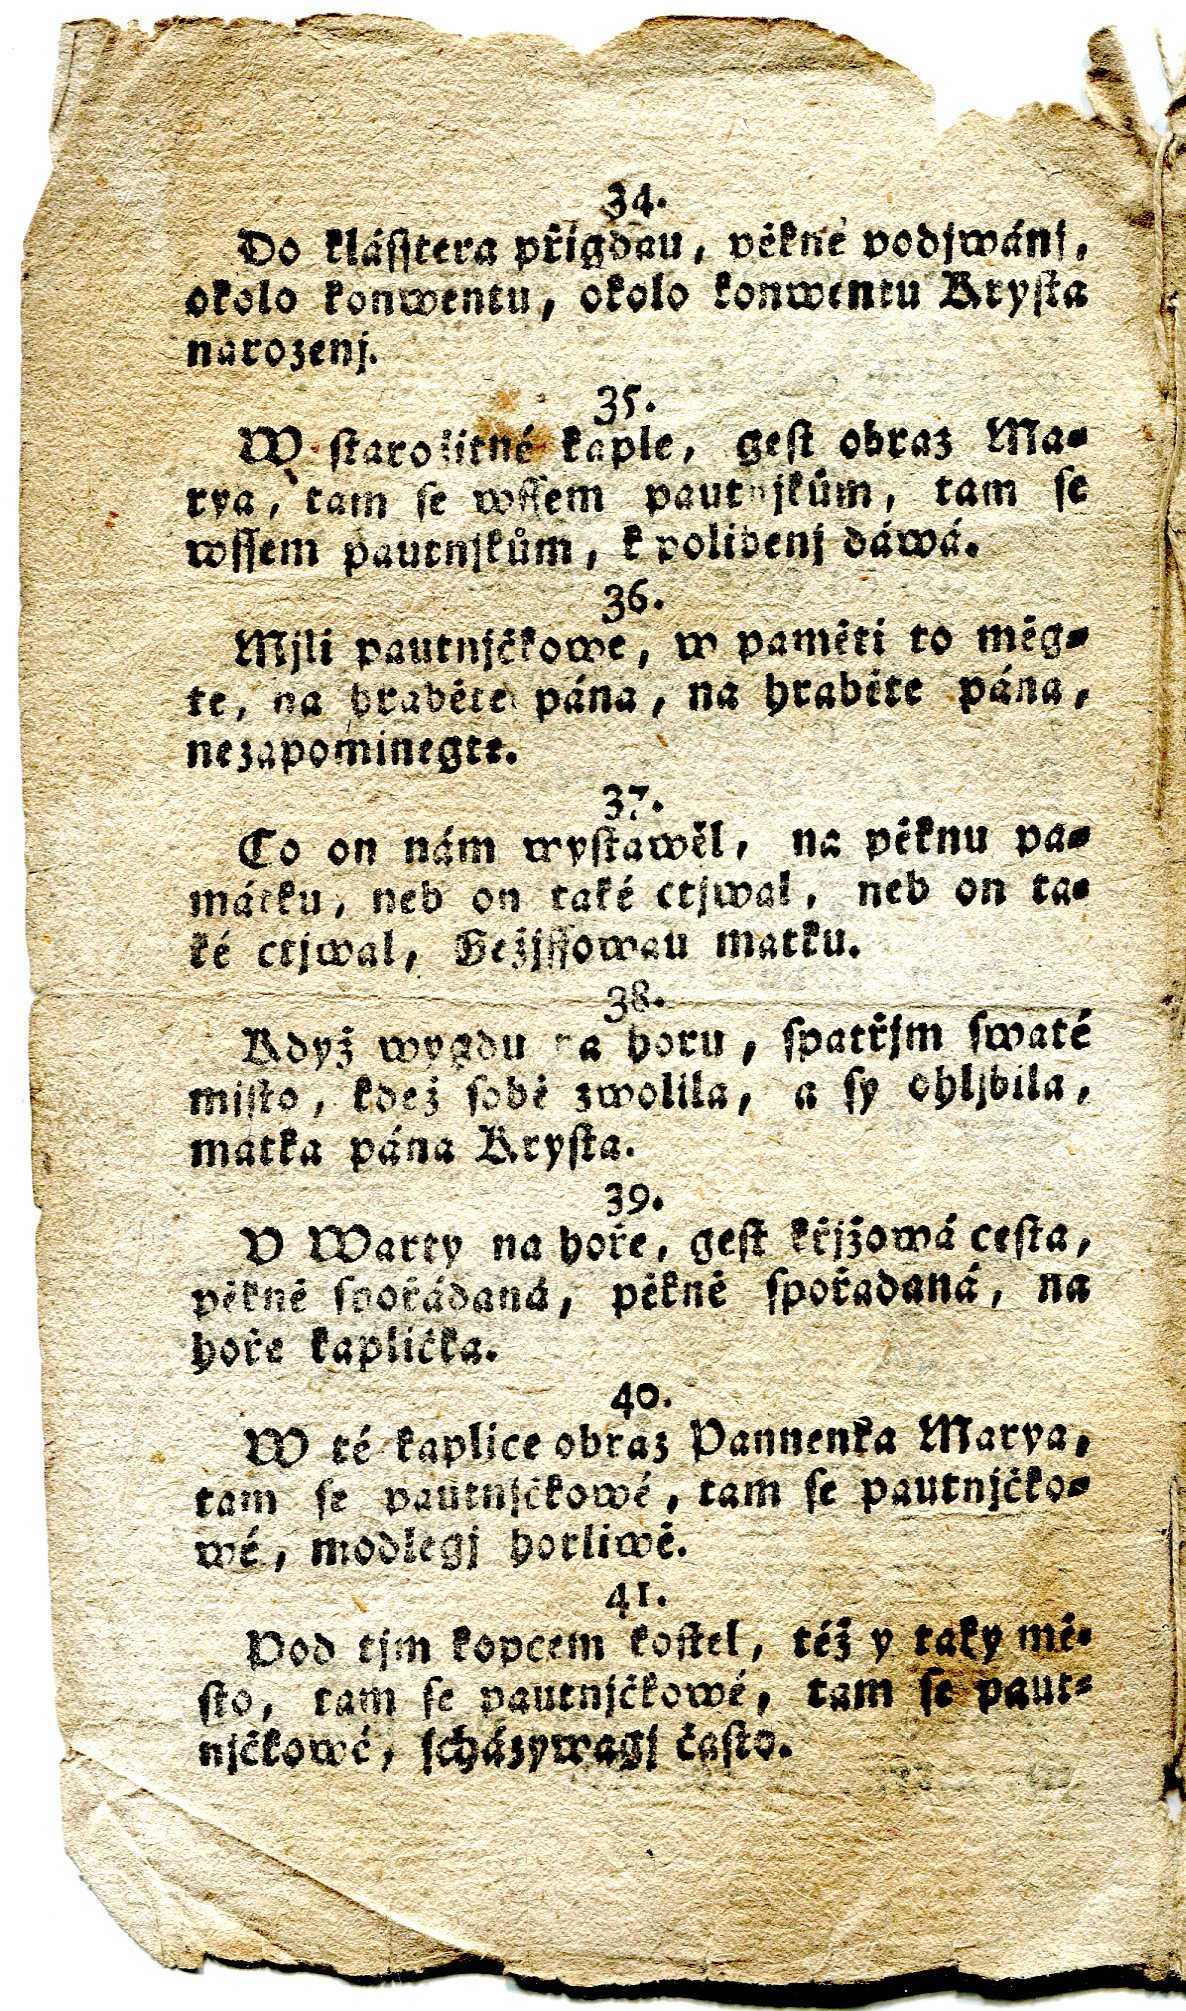 34.
Do kláſſtera přigdau, pěkné podjwánj,
okolo konwentu, okolo konwentu Kryſta
narozenj.
35.
W ſtarožitné kaple, geſt obraz Ma-
rya, tam ſe wſſem pautnjkům, tam ſe
wſſem pautnjkům, k polibenj dáwá.
36.
Mjli pautnjčkowe, w paměti to měg-
te, na hraběte pána, na hraběte pána,
nezapominegte.
37.
Co on nám wyſtawěl, na pěknu pa-
mátku, neb on také ctjwal, neb on ta-
ké ctjwal, Gežjſſowau matku.
38.
Když wygdu na horu, ſpatřjm ſwaté
mjſto, kdež ſobě zwolila, a ſy ohljbila,
matka pána Kryſta.
39.
V Warty na hoře, geſt křjžowá ceſta,
pěkně ſpořádaná, pěkně ſpořadaná, na
hoře kaplička.
40.
W té kaplice obraz Pannenka Marya,
tam ſe pautnjčkowé, tam ſe pautnjčko-
wé, modlegj horliwě.
41.
Pod tjm kopcem koſtel, též y taky mě-
ſto, tam ſe pautnjčkowé, tam ſe paut-
njčkowé, ſcházywagj čaſto.